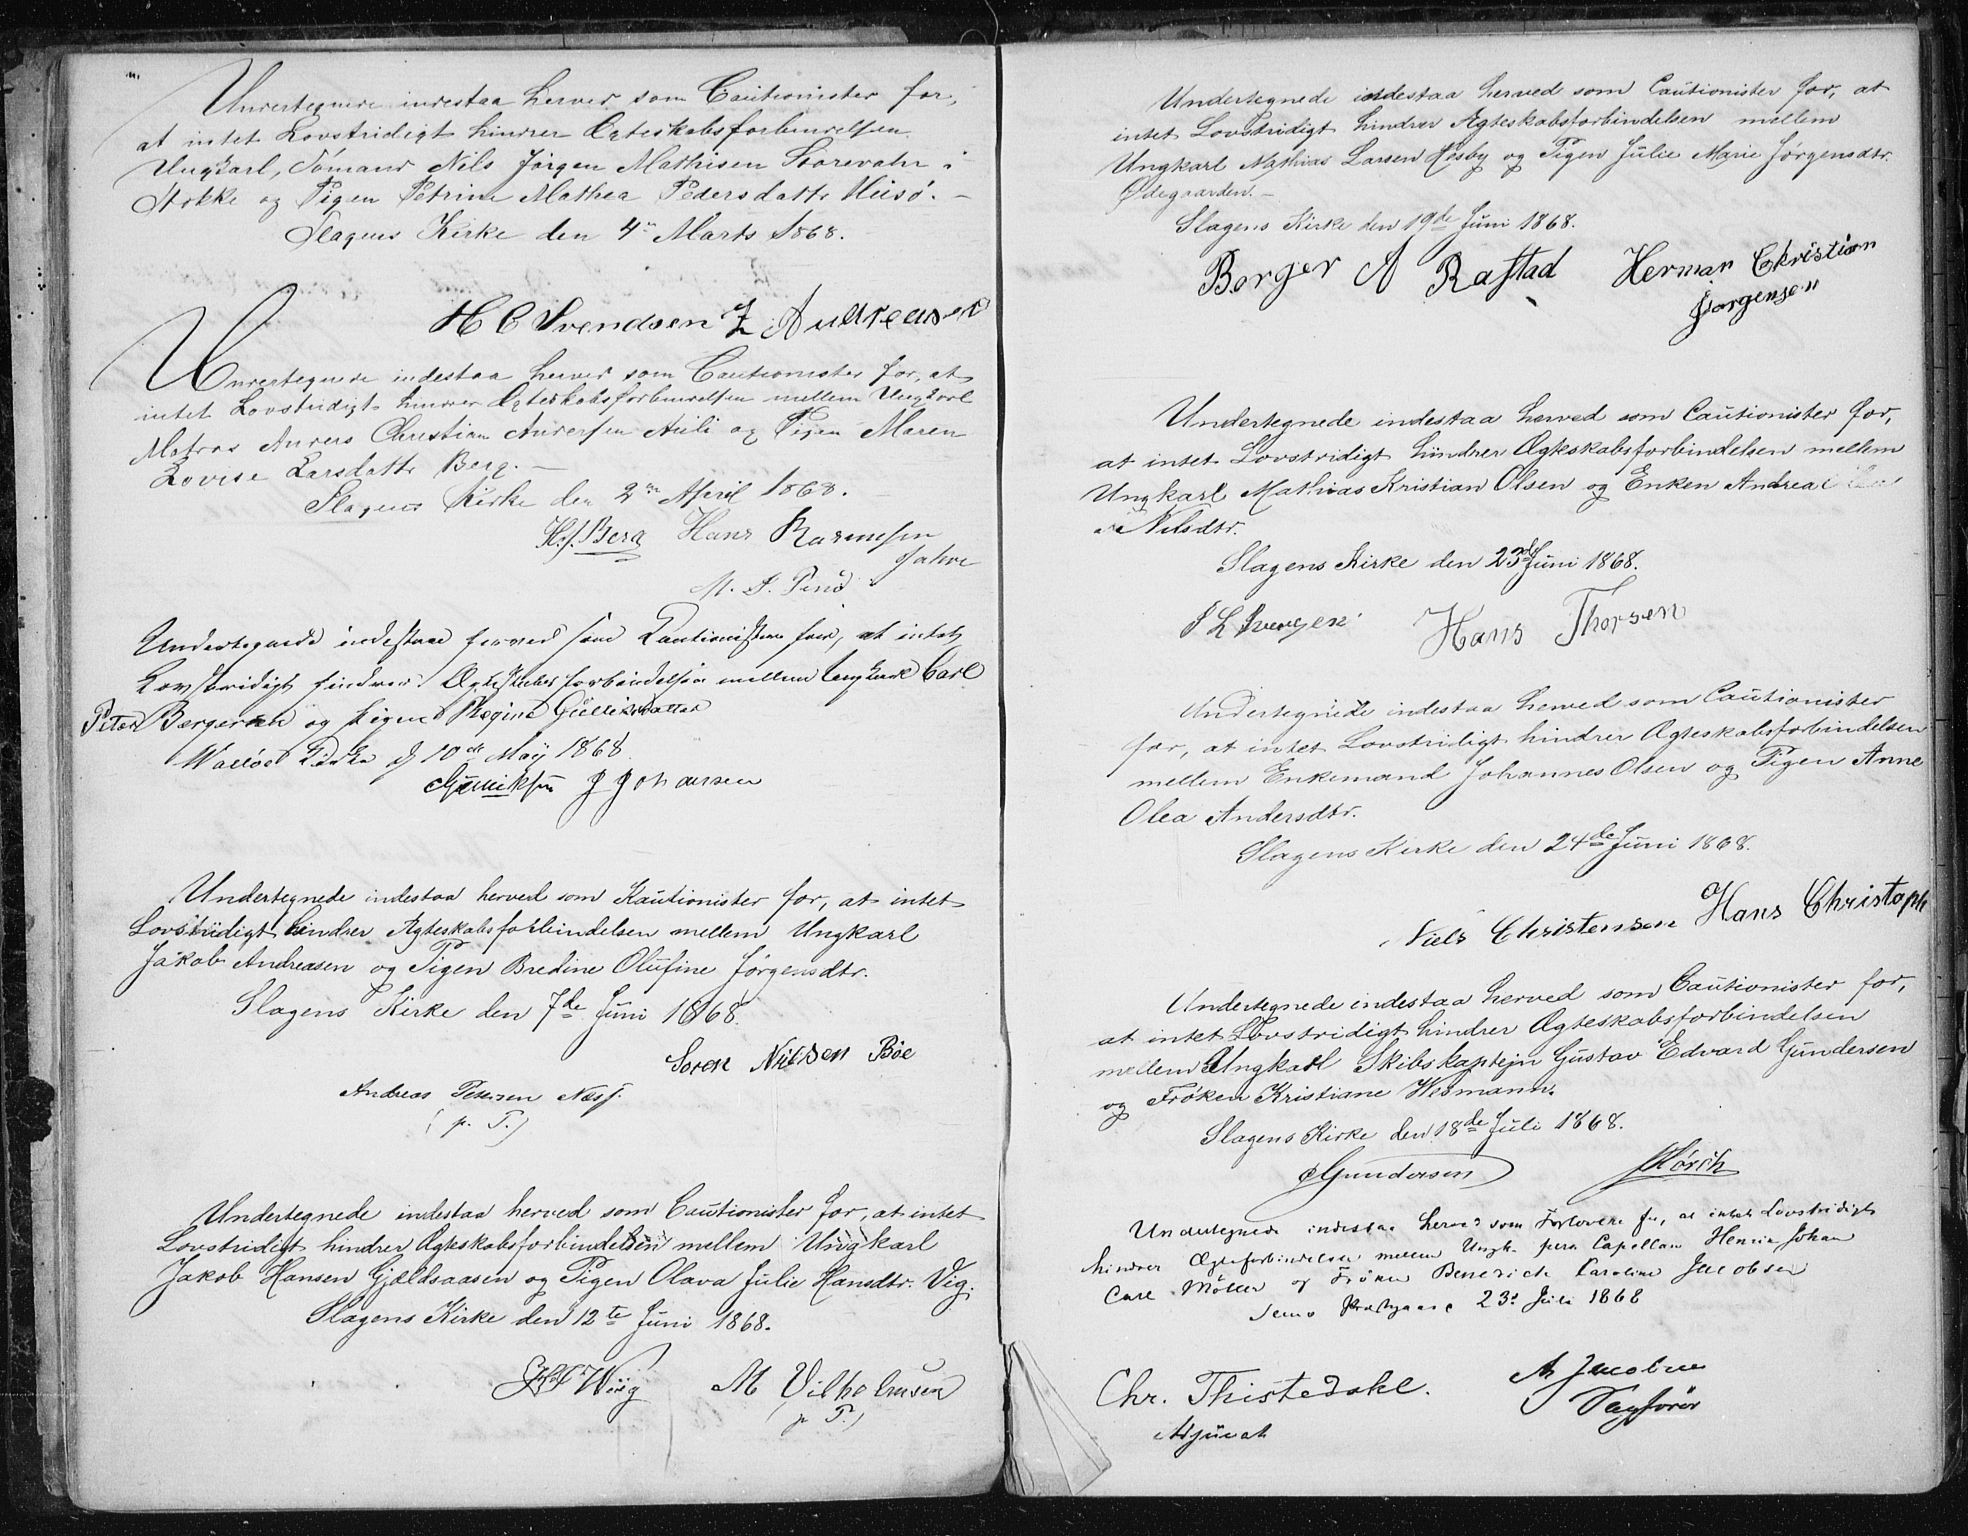 Undertegnede indestaa herved som Cautionister for,
at intet Lovstridigt hindrer Ægteskabsforbindelsen
Ungkarl, Sømand Nils Jørgen Mathisen i
Stokke og Pigen Petrine Mathea Pedersdatter Husø. –
Slagens Kirke den 4de Marts 1868.
H C Svendsen Z Andreasen
Undertegnede indestaa herved som Cautionister for, at
intet Lovstridigt hindrer Ægteskabsforbindelsen mellem Ungkarl
Matros Anders Christian Andersen Auli og Pigen Maren
Lovise Larsdatter Berg. –
Slagens Kirke den 2den April 1868.
Berg Hans Rasmussen
M.
Undertegnede indestaae herved som Cautionister for, at intet
Lovstridigt hindrer Ægteskabsforbindelsen mellem Ungkarl Carl
Peter Bergersen og Pigen Regine Gulliksdatter
Valløe Kirke d 10de May 1868
Gulliksen J Johansen
Undertegnede indestaa herved som Kautionister for, at intet
Lovstridigt hindrer Ægteskabsforbindelsen mellem Ungkarl
Jakob Andreasen og Pigen Bredine Olufine Jørgensdtr.
Slagens Kirke den 7de Juni 1868.
Soren Nilsen Böe
Andreas Petersen Næss.
(p. P.)
Undertegnede indestaa herved som Cautionister for, at intet
Lovstridigt hindrer Ægteskabsforbindelsen mellem Ungkarl
Jakob Hansen Gjældsaasen og Pigen Olava Julie Hansdtr. Vig.
Slagens Kirke den 12te Juni 1868.
Wiig M Vilhelmsen
(p P.)
Undertegnede indestaa herved som Cautionister for, at
intet Lovstridigt hindrer Ægteskabsforbindelsen mellem
Ungkarl Mathias Larsen Hesby og Pigen Julie Marie Jørgensdtr.
Ødegaarden. –
Slagens Kirke den 19de Juni 1868.
Borger A Rastad Herman Christian
Jorgensen
Undertegnede indestaa herved som Cautionister for,
at intet Lovstridigt hindrer Ægteskabsforbindelsen mellem
Ungkarl Mathias Kristian Olsen og Enken Andrea
Nilsdtr.
Slagens Kirke den 23de Juni 1868.
Hans Thorsen
Undertegnede indestaa herved som Cautionister
for, at intet Lovstridigt hindrer Ægteskabsforbindelsen
mellem Enkemand Johannes Olsen og Pigen Anne
Olea Andersdtr.
Slagens Kirke den 24de Juni 1868.
Niels Christensen Hans Christoph
Undertegnede indestaa herved som Cautionister for,
at intet Lovstridigt hindrer Ægteskabsforbindelsen
mellem Ungkarl Skibskaptejn Gustav Edvard Gundersen
og Frøken Kristiane Wesmann.
Slagens Kirke den 18de Juli 1868.
Gundersen
Undertegnede indestaa herved som Forlovere for, at intet Lovstridigt
hindrer Ægteforbindelse mellem Ungk. pers. Capellan Henrik Johan
Carl Möller og Frøken Benedicte Caroline Jacobsen
Sems Præstgaard 23d Juli 1868
Chr. Thistedahl. A Jacobsen
Adjunct Sagförer